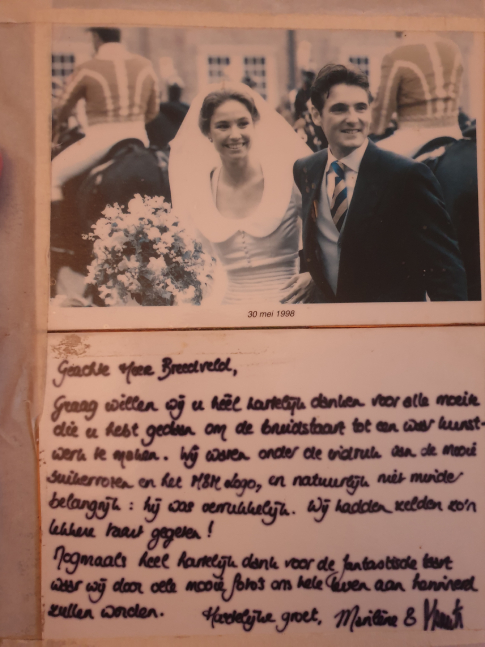 30 mei 1998
Geachte Heer Breedveld,
Graag willen wij u héél hartelijk danken voor alle moeite
die u hebt gedaan om de bruidstaart tot een waar kunst-
werk te maken. Wij waren onder de indruk van de mooie
suikerrozen en het M&M logo, en natuurlijk niet minder
belangrijk : hij was verrukkelijk. Wij hadden zelden zo'n
lekkere taart gegeten !
Nogmaals heel hartelijk dank voor de fantastische taart
waar wij door alle mooie foto's ons hele leven aan herinnerd
zullen worden. Hartelijke groet, Marilène &